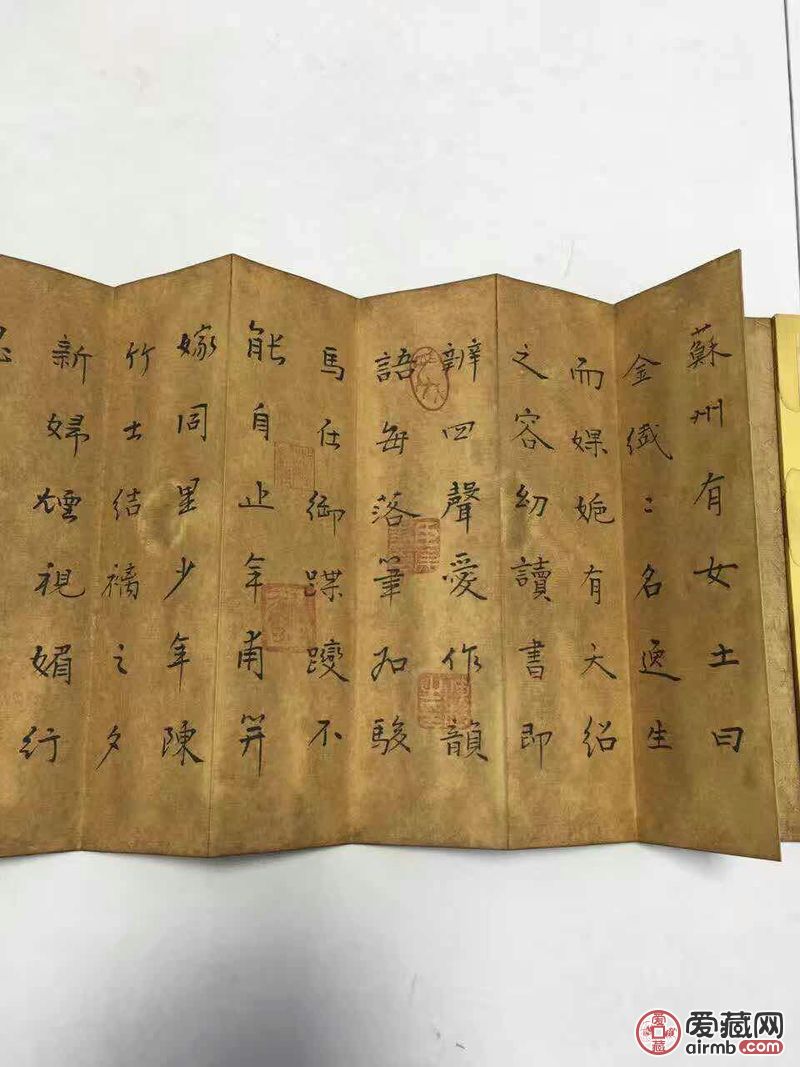 蘇州有女士曰
金纖〻名逸生
而婐姽有天紹
之容幼讀書即
辨四聲愛作韻
語每落筆如駿
馬仕御蹀躞不
能自止年甫笄
嫁同里少年陳
竹士結褵之夕
新婦煙視媚行
爱藏
爱藏网
airmb.com